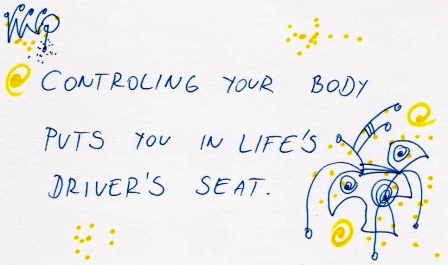 CONTROLING YOUR BODY
PUTS YOU IN LIFE'S
DRIVER'S SEAT.